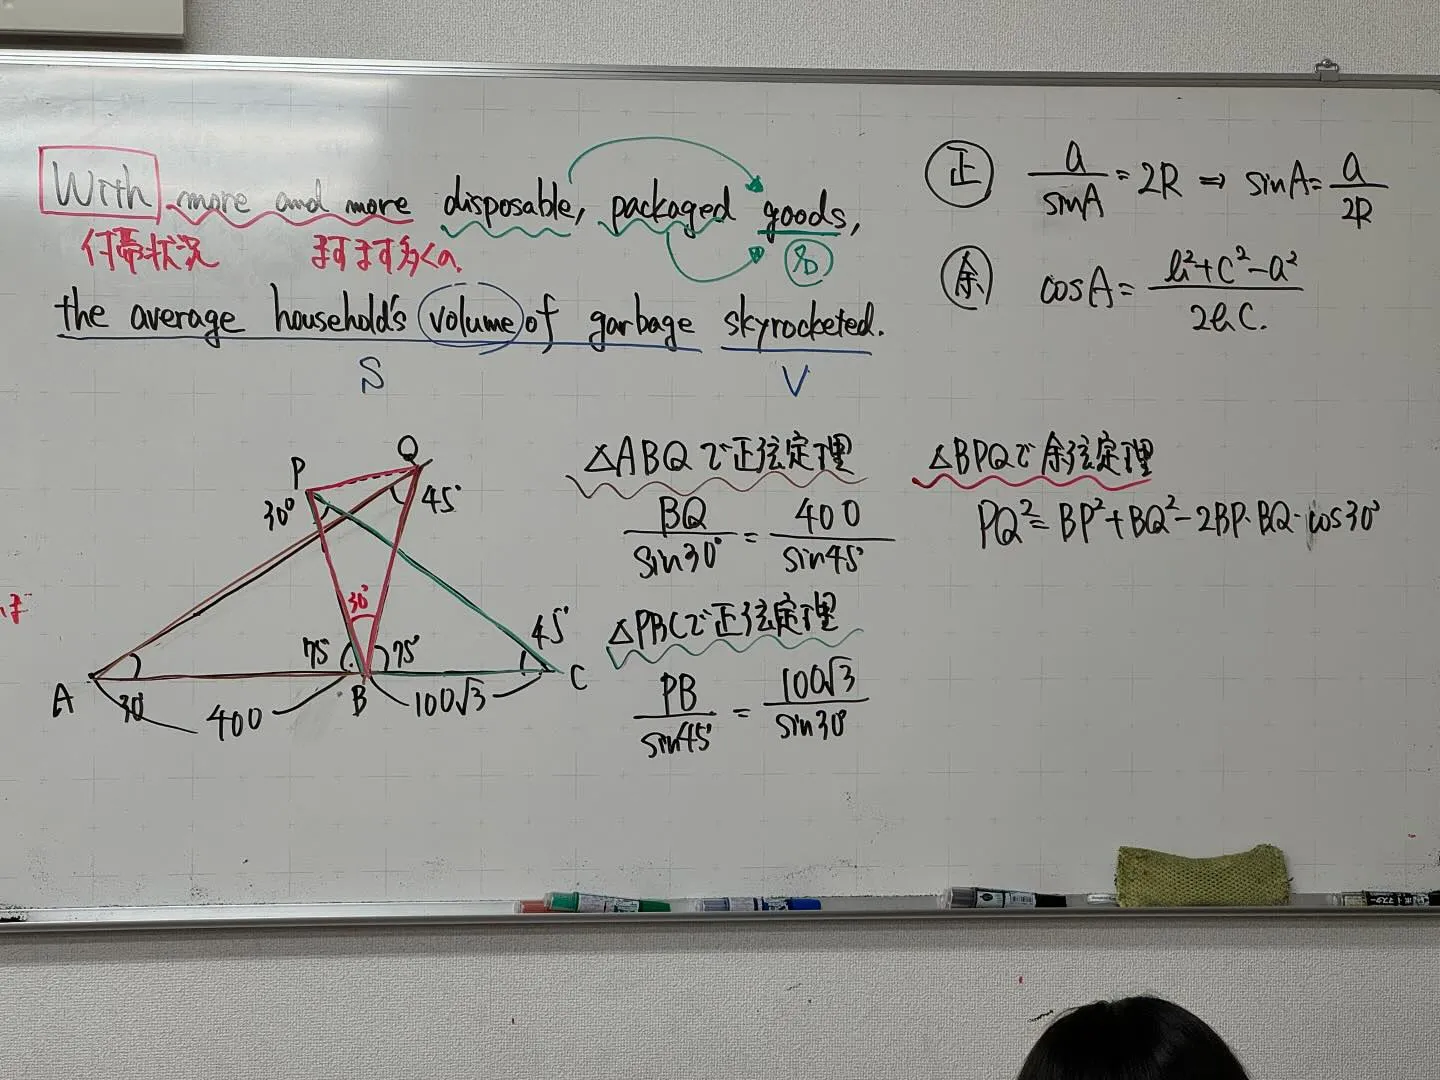 With more and more disposable, packaged goods,
付帯状況 ますます多くの
the average household's volume of garbage skyrocketed.
S V
正 a/sinA = 2R ⇒ sinA = a/2R
余 cosA = b²+c²-a²/2bc.
P Q
30° 45°
30°
75° 75° 45°
A B C
30° 400 100√3
△ABQで正弦定理
BQ/sin30° = 400/sin45°
△PBCで正弦定理
PB/sin45° = 100√3/sin30°
△BPQで余弦定理
PQ² = BP² + BQ² - 2BP·BQ·cos30°